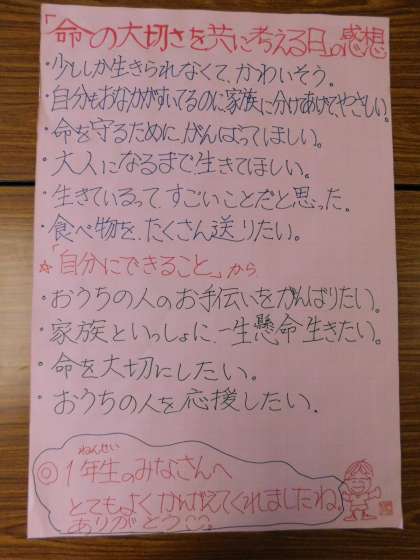 「命の大切さを共に考える日」の感想
・少ししか生きられなくて、かわいそう。
・自分もおなかがすいてるのに家族に分けてあげて、やさしい。
・命を守るために、がんばってほしい。
・大人になるまで生きてほしい。
・生きているって、すごいことだと思った。
・食べ物を、たくさん送りたい。
☆「自分にできること」から
・おうちの人のお手伝いをがんばりたい。
・家族といっしょに、一生懸命生きたい。
・命を大切にしたい。
・おうちの人を応援したい。
ねんせい
◎1年生のみなさんへ
とてもよくかんがえてくれましたね。
ありがとう♡♡